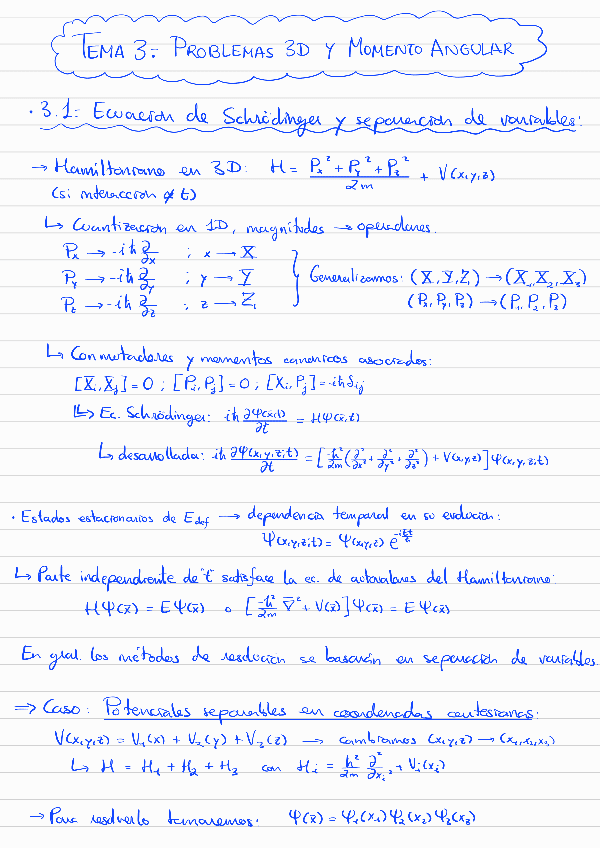 TEMA 3: PROBLEMAS 3D Y MOMENTO ANGULAR
· 3.1: Ecuación de Schrödinger y separación de variables:
→ Hamiltoniano en 3D: H = (Px² + Py² + Pz²)/2m + V(x,y,z)
(si interacción ∉ t)
↳ Cuantización en 1D, magnitudes → operadores.
Px → -iħ ∂/∂x ; x → X
Py → -iħ ∂/∂y ; y → Y
Pz → -iħ ∂/∂z ; z → Z
} Generalizamos: (X,Y,Z) → (X₁,X₂,X₃)
(Px,Py,Pz) → (P₁,P₂,P₃)
↳ Conmutadores y momentos canónicos asociados:
[Xi,Xj] = 0 ; [Pi,Pj] = 0 ; [Xi,Pj] = -iħδij
↳ Ec. Schrödinger: iħ ∂Ψ(x,t)/∂t = HΨ(x,t)
↳ desarrollada: iħ ∂Ψ(x,y,z;t)/∂t = [-ħ²/2m (∂²/∂x² + ∂²/∂y² + ∂²/∂z²) + V(x,y,z)] Ψ(x,y,z;t)
· Estados estacionarios de E def → dependencia temporal en su evolución:
Ψ(x,y,z;t) = Ψ(x,y,z) e^(-iEt/ħ)
↳ Parte independiente de "t" satisface la ec. de autovalores del Hamiltoniano:
HΨ(x̄) = EΨ(x̄) o [-ħ²/2m ∇̄² + V(x̄)] Ψ(x̄) = EΨ(x̄)
En gral. los métodos de resolución se basarán en separación de variables.
⇒ Caso: Potenciales separables en coordenadas cartesianas:
V(x,y,z) = V₁(x) + V₂(y) + V₃(z) → cambiamos (x,y,z) → (x₁,x₂,x₃)
↳ H = H₁ + H₂ + H₃ con Hi = ħ²/2m ∂²/∂xi² + Vi(xi)
→ Para resolverlo tomaremos: Ψ(x̄) = Ψ₁(x₁)Ψ₂(x₂)Ψ₃(x₃)